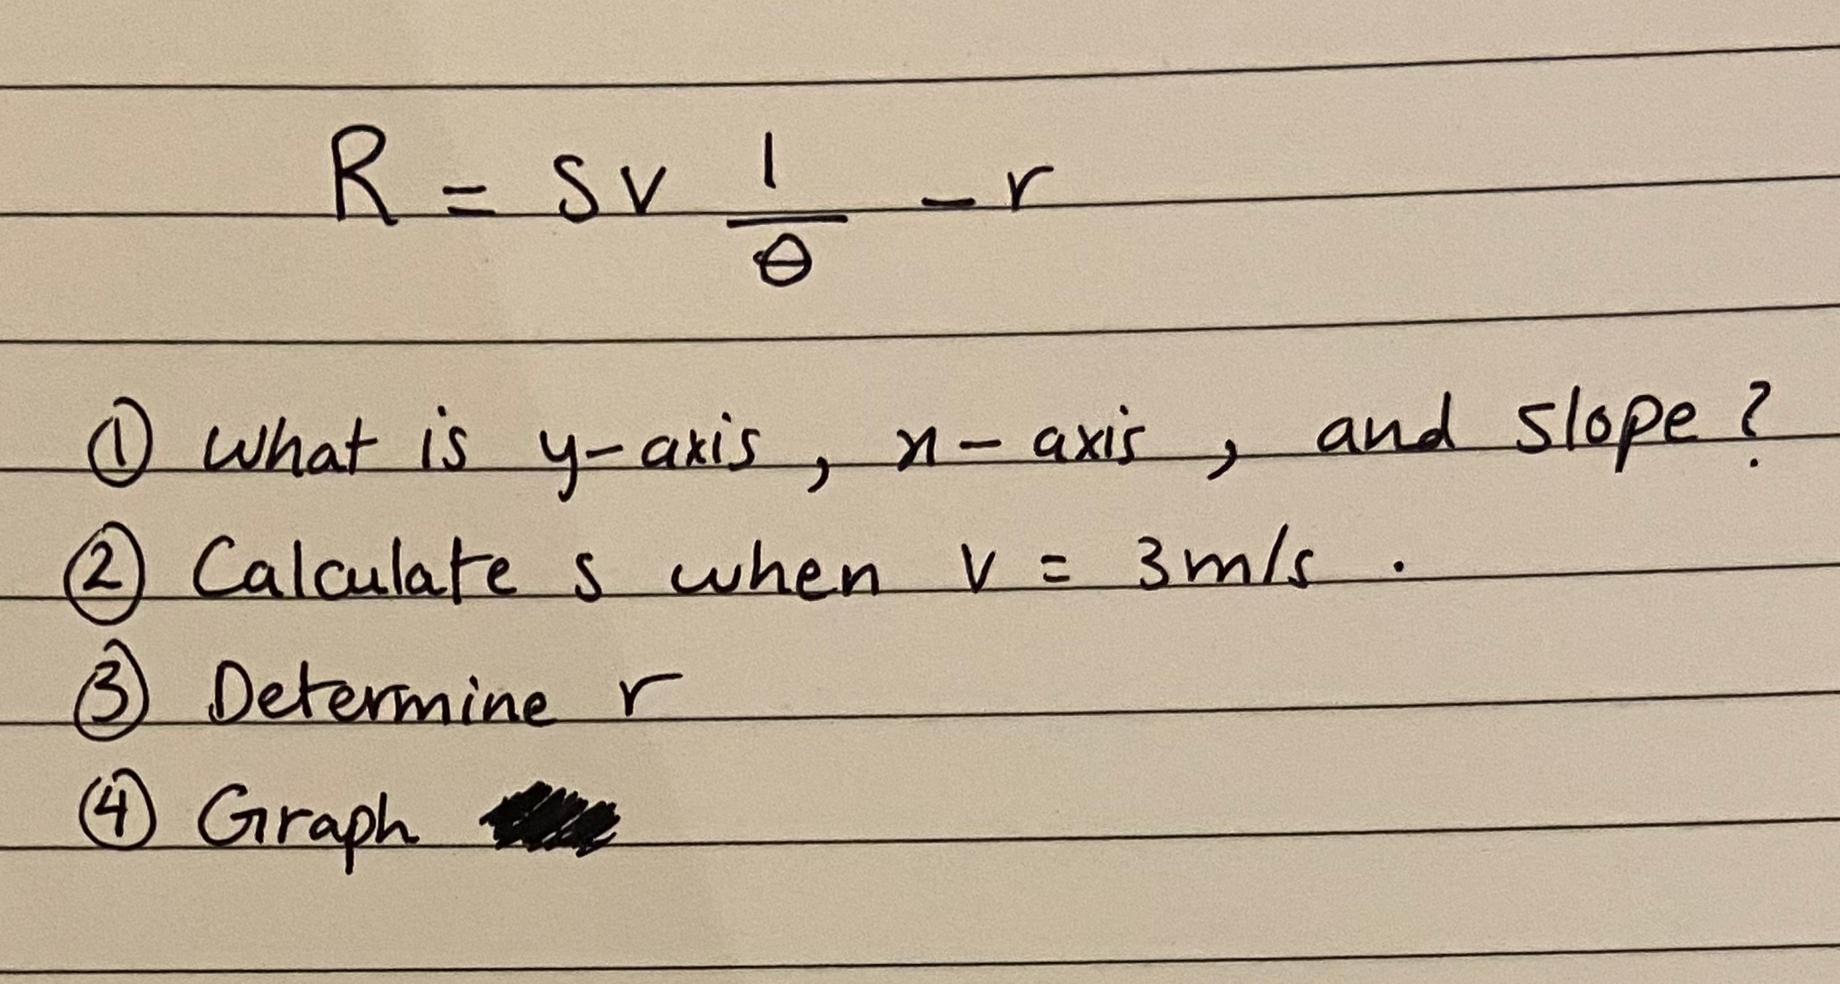 R = SV 1/θ - r
① What is y-axis, x-axis, and slope?
② Calculate s when v = 3m/s.
③ Determine r
④ Graph